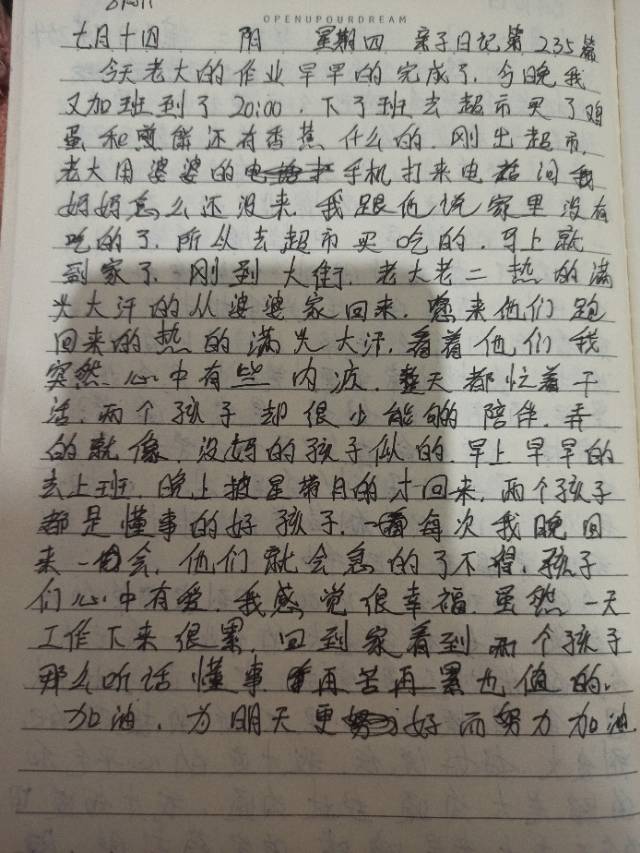 OPENUPOURDREAM
七月十四 阴 星期四 亲子日记第235篇
今天老大的作业早早的完成了，今晚我
又加班到了20:00，下了班去超市买了鸡
蛋和煎饼还有香蕉什么的，刚出超市，
老大用婆婆的手机打来电话问我
妈妈怎么还没来，我跟他说家里没有
吃的了，所以去超市买吃的，马上就
到家了，刚到大街，老大老二热的满
头大汗的从婆婆家回来，原来他们跑
回来的热的满头大汗，看着他们我
突然心中有些内疚，整天都忙着干
活，两个孩子却很少能够的陪伴，弄
的就像，没妈的孩子似的，早上早早的
去上班，晚上披星带月的才回来，两个孩子
都是懂事的好孩子，每次我晚回
来一会，他们就会急的了不得，孩子
们心中有爱，我感觉很幸福，虽然一天
工作下来很累，回到家看到两个孩子
那么听话懂事，再苦再累也值的，
加油，为明天更好而努力加油